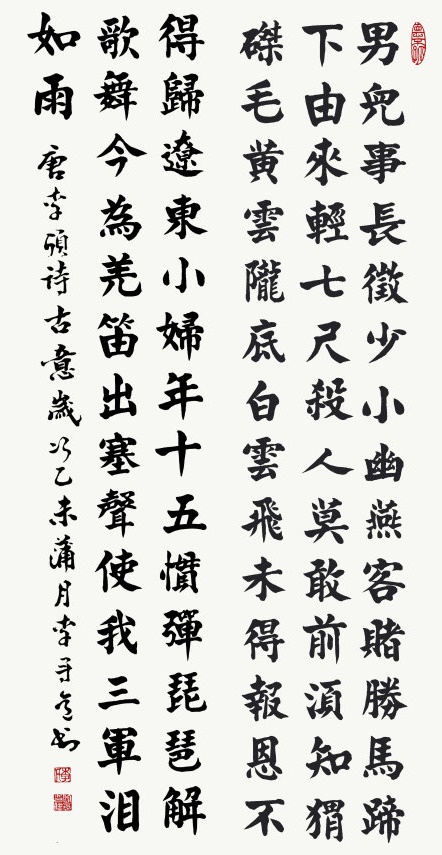 男兒事長徵少小幽燕客賭勝馬蹄
下由來輕七尺殺人莫敢前湏知猬
磔毛黄雲隴底白雲飛未得報恩不
得歸遼東小婦年十五慣彈琵琶解
歌舞今為羌笛出塞聲使我三軍泪
如雨
唐李頎詩古意歲次乙未蒲月李书